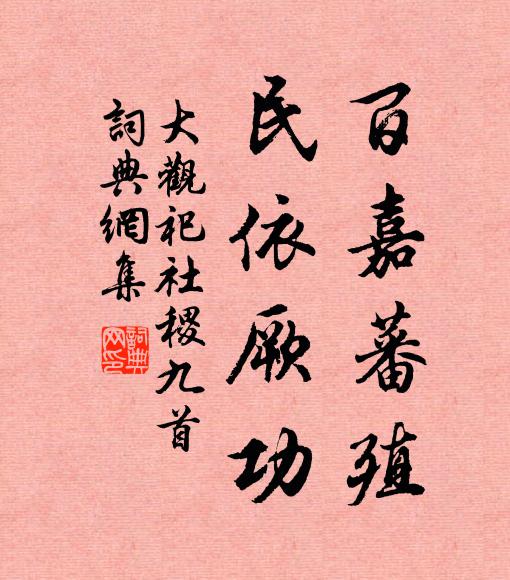 百嘉蕃殖
民依厥功
大觀祀社稷九首
詞典網集
詞典網印